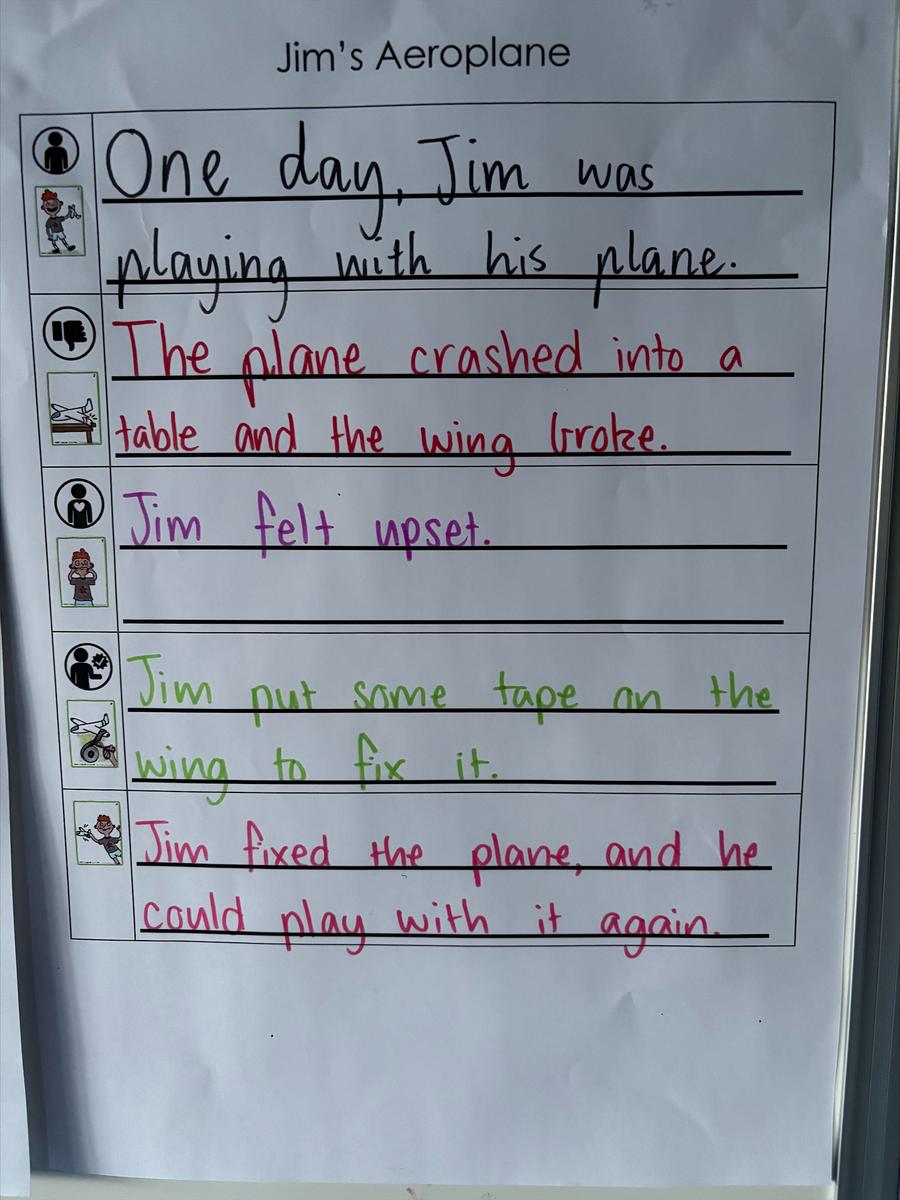 Jim's Aeroplane
One day, Jim was
playing with his plane.
The plane crashed into a
table and the wing broke.
Jim felt upset.
Jim put some tape on the
wing to fix it.
Jim fixed the plane, and he
could play with it again.